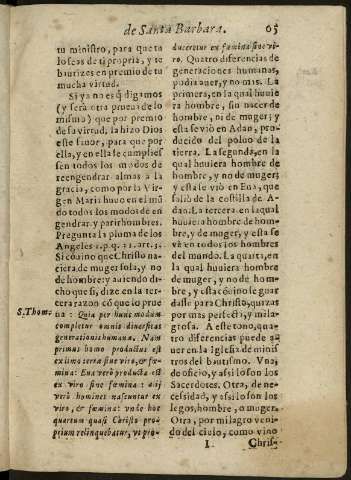 de Santa Barbara. 65
tu ministro, para que tu
lo seas de ti propria, y te
bautizes en premio de tu
mucha virtud.
Si ya no es q̃ digamos
(y serà otra prueba de lo
mismo) que por premio
de su virtud, la hizo Dios
este fauor, para que por
ella, y en ella se cumpliessen
todos los modos de
reengendrar almas a la
gracia, como por la Virgen
Maria huuo en el mũdo
todos los modos de engendrar,
y parir hombres.
Pregunta la pluma de los
Angeles 1. p. q. art. 3.
Si cõuino que Christo naciera
de muger sola, y no
de hombre: y auiendo dicho
que si, dize en la tercera
razon cõ que lo prueua
S. Thom.
: Quia per hunc modum
completur omnis diuersitas
generationis humanæ. Nam
primus homo productus est
ex limo terræ sine viro, & fæmina:
Eua verò producta est
ex viro sine fæmina: alij
verò homines nascuntur ex
viro, & fæmina: vnde hoc
quartum quasi Christo proprium
relinquebatur, vt produceretur
ex fæmina sine viro.
Quatro diferencias de
generaciones humanas,
pudia auer, y no mas. La
primera, en la qual huuiera
hombre, sin nacer de
hombre, ni de muger; y
esta se viò en Adan, producido
del poluo de la
tierra. La segunda, en la
qual huuiera hombre de
hombre, y no de muger:
y esta se viò en Eua, que
saliò de la costilla de Adan.
La tercera, en la qual
huuiera hombre de hombre,
y de muger, y esta se
vè en todos los hombres
del mundo. La quarta, en
la qual huuiera hombre
de muger, y no de hombre,
y esta cõuino se guardasse
para Christo, quizas
por mas perfecta, y milagrosa.
A este tono, quatro
diferencias puede auer
en la Iglesia de ministros
del bautismo. Vna,
de oficio, y assi lo son los
Sacerdotes. Otra, de necessidad,
y assi lo son los
legos, hombre, o muger.
Otra, por milagro venido
del cielo, como vino
I Chris-